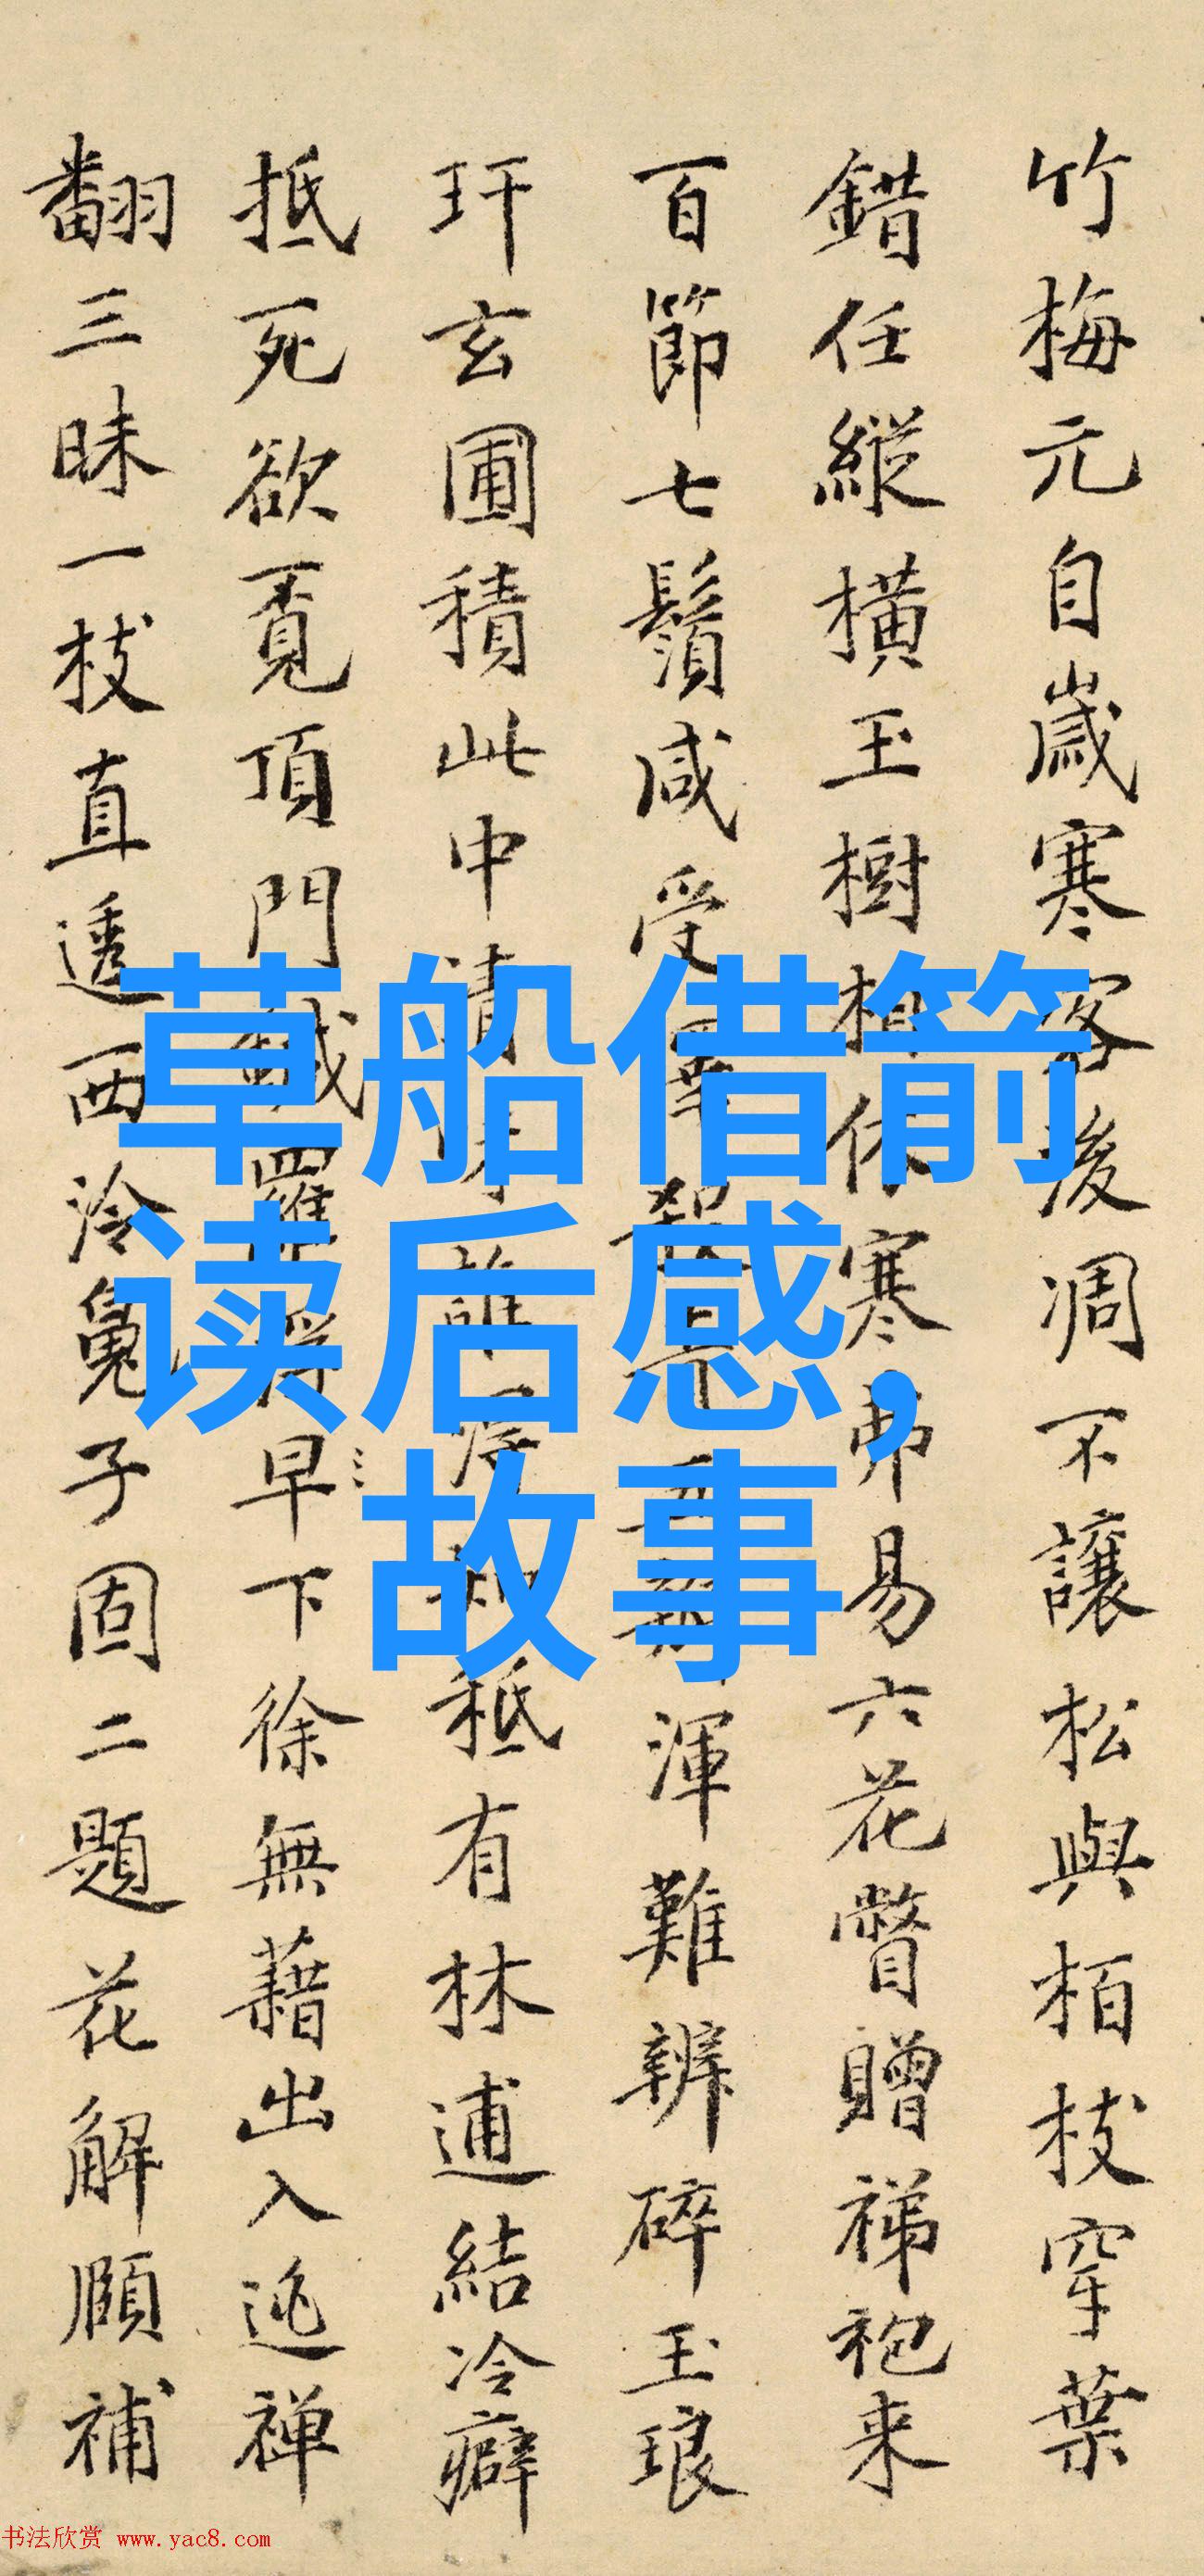 竹梅元自歲寒客後凋不讓松與栢枝穿葉
錯任縱橫玉樹相依寒弗易六花瞥贈祶袍来
百節七鬚咸受渾難辨碎玉琅
玕玄圃積此中清秪有林逋結冷癖
抵死欲覔頂門早下徐無藉出入逃禅
翻三昧一枝直透西泠魂子固二題花解頤補
草船借箭
读后感,
故事
书法欣赏 www.yac8.com